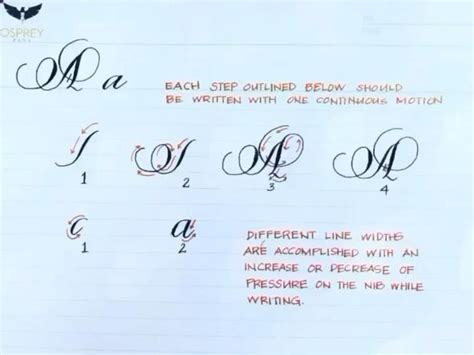 OSPREY
PENS
A a
EACH STEP OUTLINED BELOW SHOULD
BE WRITTEN WITH ONE CONTINUOUS MOTION
1 2 3 4
c a
1 2
DIFFERENT LINE WIDTHS
ARE ACCOMPLISHED WITH AN
INCREASE OR DECREASE OF
PRESSURE ON THE NIB WHILE
WRITING.